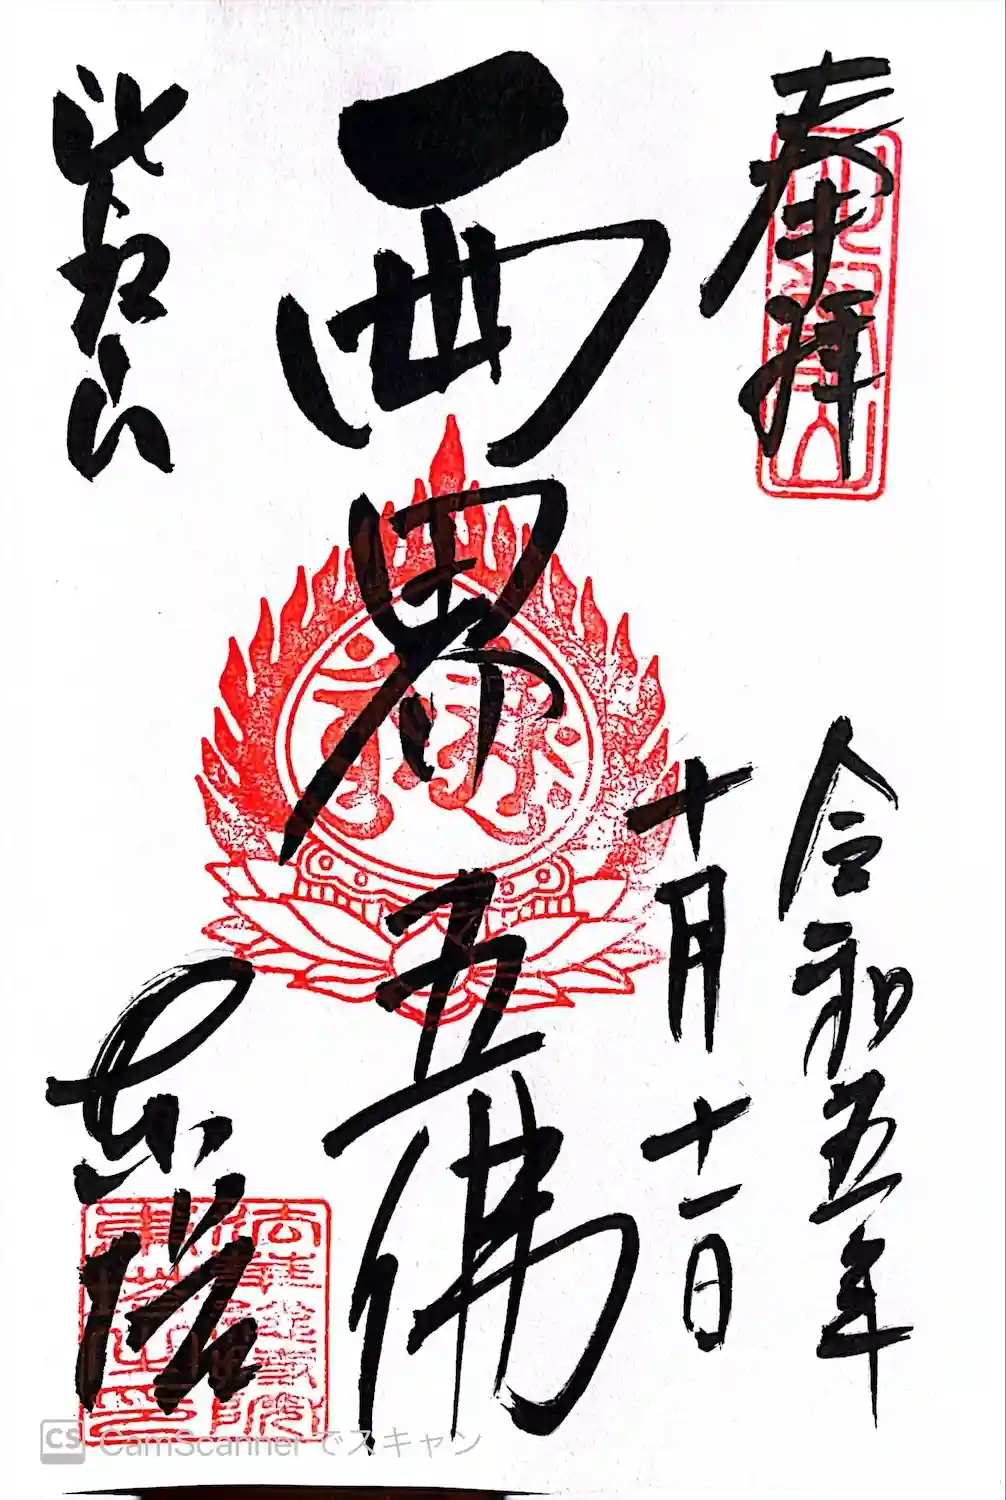 奉拝
令和五年
十月十一日
両界五佛
比叡山
東塔
CS CamScanner でスキャン